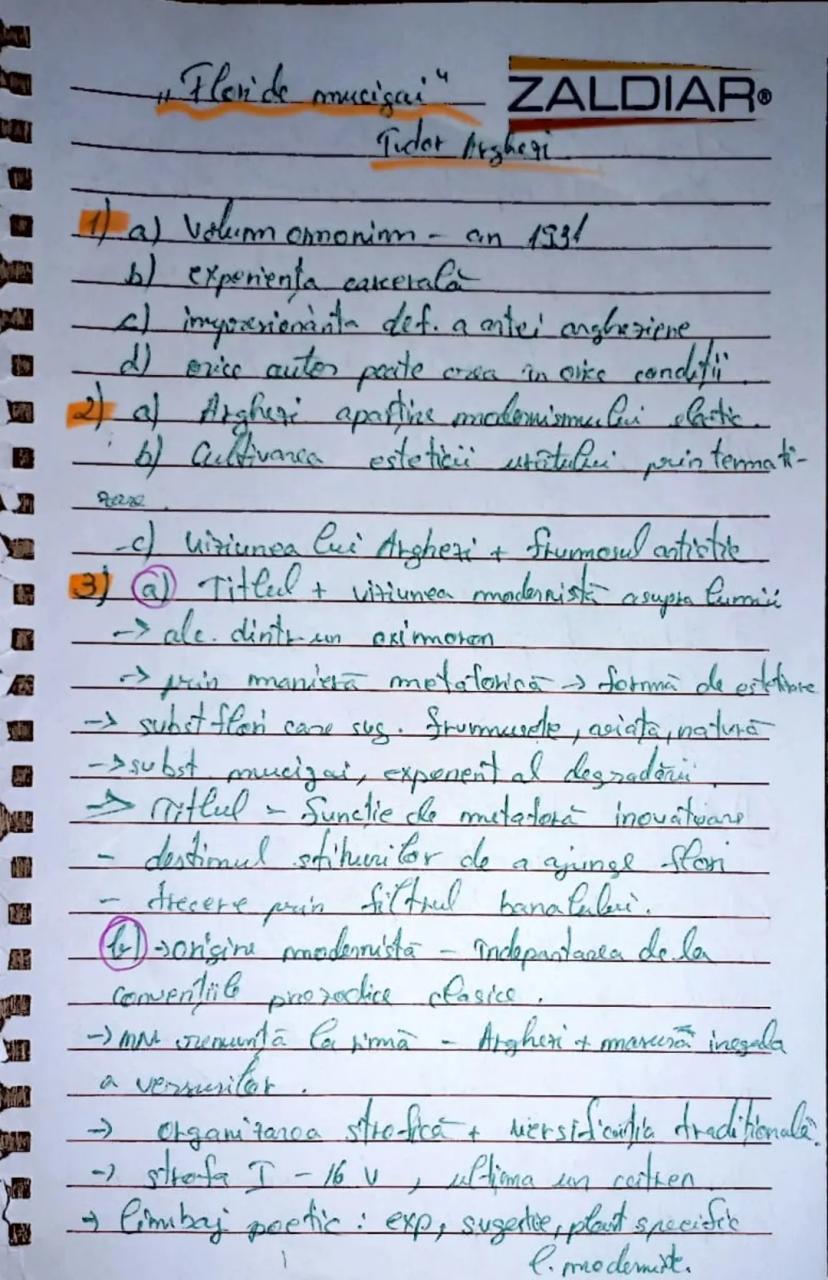 „Flori de mucigai"
ZALDIAR®
Tudor Arghezi
1) a) Volum omonim - an 1931
b) experiența carcerală
c) impresionanta def. a artei argheziene
d) orice autor poate crea în orice condiții.
2) a) Arghezi aparține modernismului
b) Cultivarea esteticii urâtului prin termati-
c) Viziunea lui Arghezi + frumosul artistic
3) a) Titlul + viziunea modernistă asupra lumii
-> alc. dintr-un oximoron
-> prin manieră metaforică -> formă de
-> subst flori care sug. frumusețe, natură
-> subst. mucigai, exponent al degradării.
=> Titlul - funcție de metaforă inovatoare
- destinul de a ajunge flori
- trecere prin filtrul banalului.
b) -> origine modernistă - îndepărtarea de la
convențiile prozodice clasice.
-> nu renunță la rimă - Arghezi + măsură inegala
a versurilor.
-> organizarea strofică + versificația tradițională.
-> strofa I - 16 v, ultima un catren
-> limbaj poetic: exp, sugestie, specific
l. modernist.